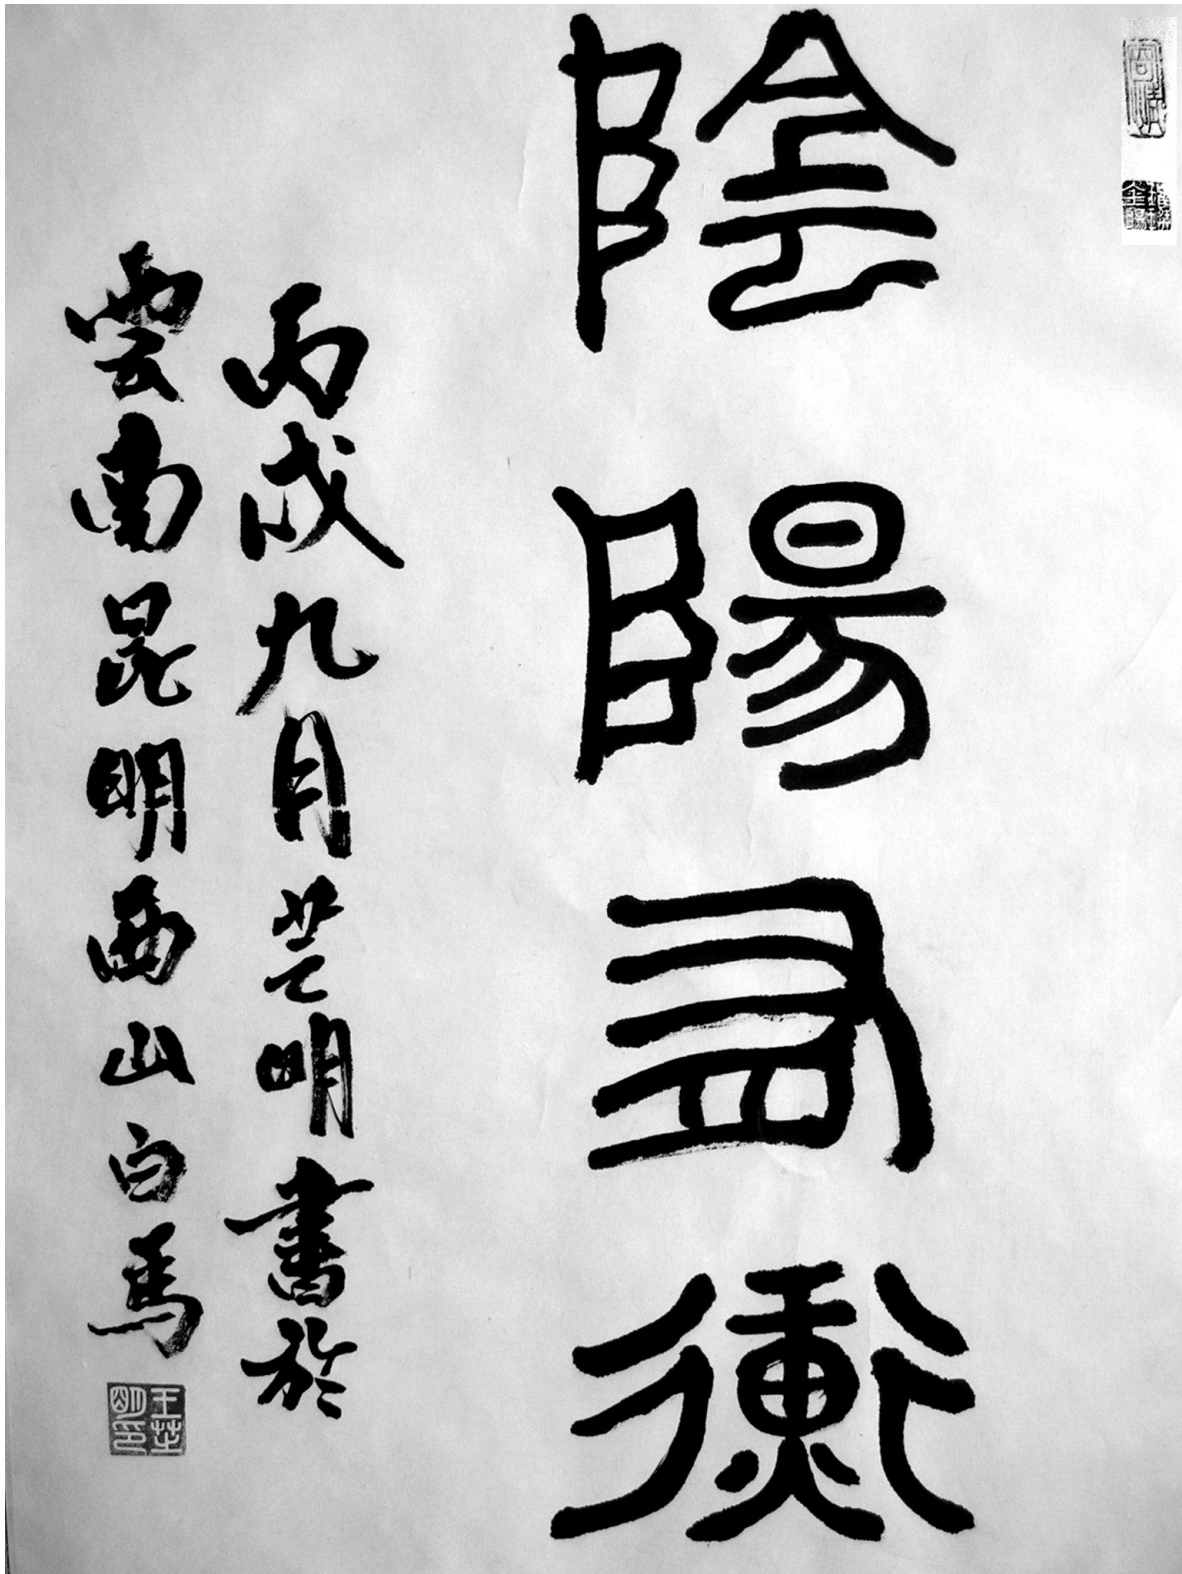 寄情
陰陽衡
丙戌九月芒明書於
雲南昆明西山白馬
王芒明印